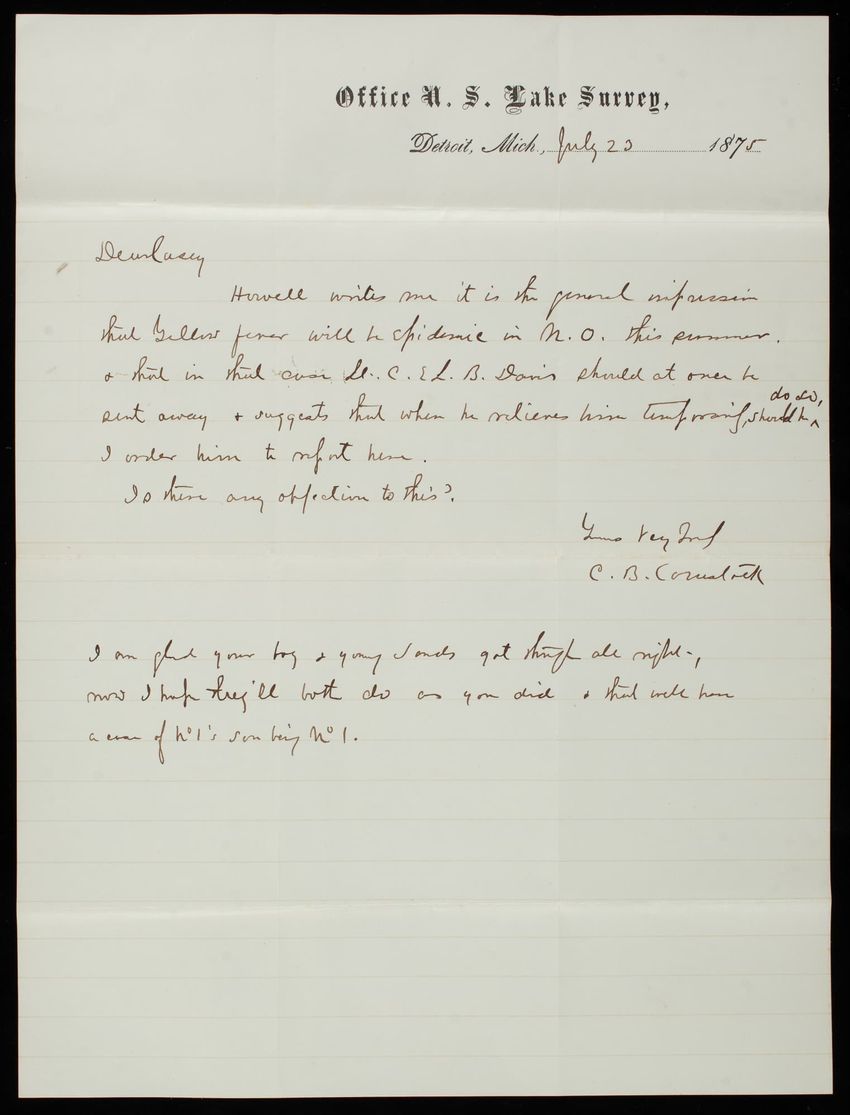 Office U. S. Lake Survey,
Detroit, Mich., July 23 1875
Dear Casey
Howell writes me it is the general impression
that Yellow fever will be epidemic in N. O. this summer.
& that in that case Lt. C. E L. B. Davis should at once be
do so,
sent away & suggests that when he relieves him temporarily, should he ^
I order him to report here.
Is there any objection to this?
Yours Very Truly
C. B. Comstock
I am glad your boy & young Sands got through all right,
now I hope they'll both do as you did & that will have
a case of No 1's son being No 1.